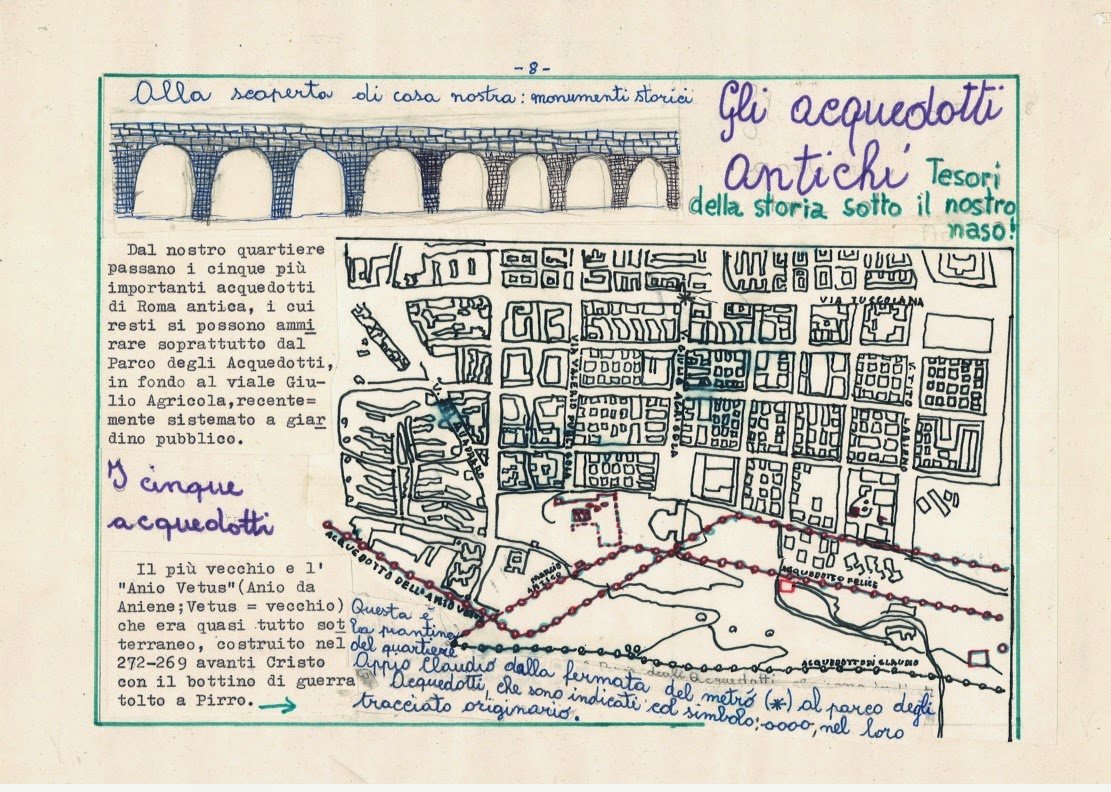 - 8 -
Alla scoperta di casa nostra: monumenti storici
Gli acquedotti
antichi
Tesori
della storia sotto il nostro
naso!
Dal nostro quartiere
passano i cinque più
importanti acquedotti
di Roma antica, i cui
resti si possono ammi
rare soprattutto dal
Parco degli Acquedotti,
in fondo al viale Giu-
lio Agricola,recente=
mente sistemato a giar
dino pubblico.
I cinque
acquedotti
Il più vecchio e l'
"Anio Vetus"(Anio da
Aniene;Vetus = vecchio)
che era quasi tutto sot
terraneo, costruito nel
272-269 avanti Cristo
con il bottino di guerra
tolto a Pirro.
VIA TUSCOLANA
VIA VALERIO PUBLICOLA
V. GIULIO AGRICOLA
V. TITO LABIENO
V. QUADRARO
ACQUEDOTTO DELL'ANIO VETUS
MARCIO
ANTICO
ACQUEDOTTO FELICE
ACQUEDOTTO DI CLAUDIO
Questa è
la piantina
del quartiere
Appio Claudio dalla fermata del metró (*) al parco degli
Acquedotti, che sono indicati col simbolo:oooo, nel loro
tracciato originario.